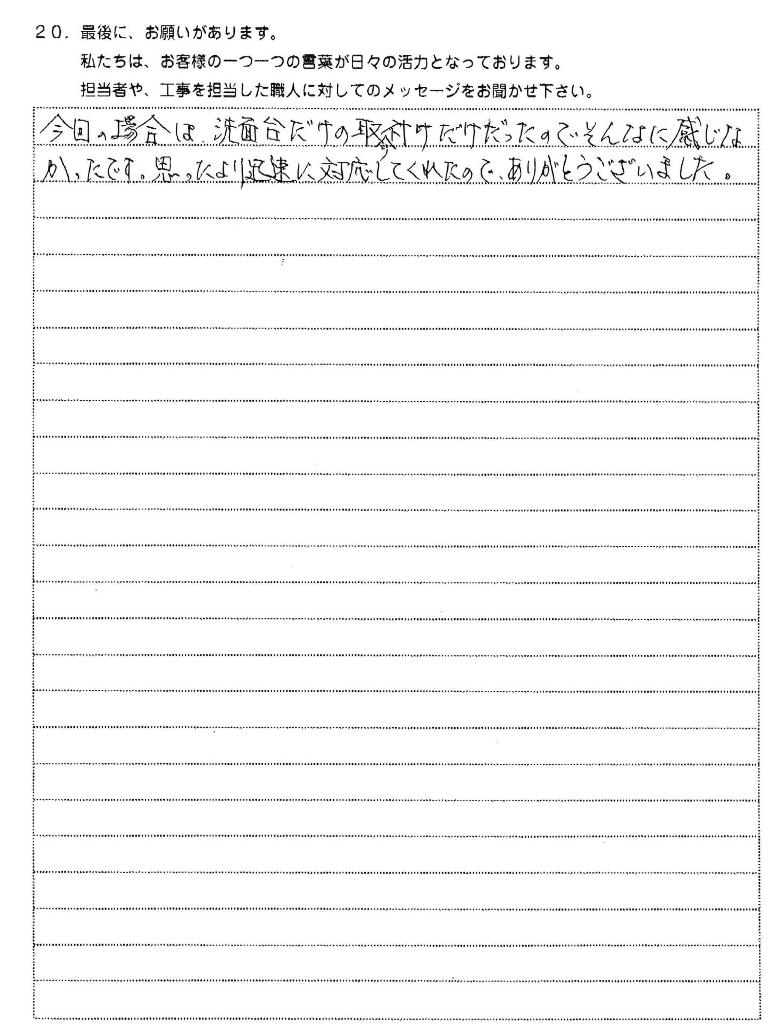 20. 最後に、お願いがあります。
私たちは、お客様の一つ一つの言葉が日々の活力となっております。
担当者や、工事を担当した職人に対してのメッセージをお聞かせ下さい。
今回の場合は、洗面台だけの取り付けだけだったので、そんなに感じな
かったです。思ったより迅速に対応してくれたので、ありがとうございました。